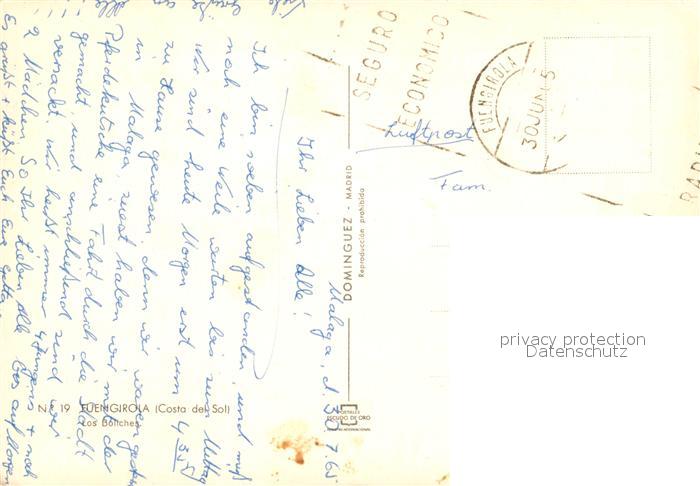 Malaga, d. 30. 7. 65
Ihr Lieben Alle!
Ich bin soeben aufgestanden, und muß
noch eine Weile warten bis zum Mittag
Wir sind heute Morgen erst um
zu Hause gewesen, denn wir waren gestern
in Malaga, zuerst haben wir mit der
Pferdekutsche eine Fahrt durch die Stadt
gemacht und anschließend sind wir
versackt. Wir heißt immer 4 Jungens + noch
2 Mädchen. So Ihr Lieben Alle bis auf Morgen
Es grüßt + küßt Euch Eure
SEGURO
ECONOMICO
FUENGIROLA
30 JUN
Luftpost
Fam.
DOMINGUEZ - MADRID
Reproducción prohibida
N.º 19 FUENGIROLA (Costa del Sol)
Los Boliches
POSTALES
ESCUDO DE ORO
privacy protection
Datenschutz